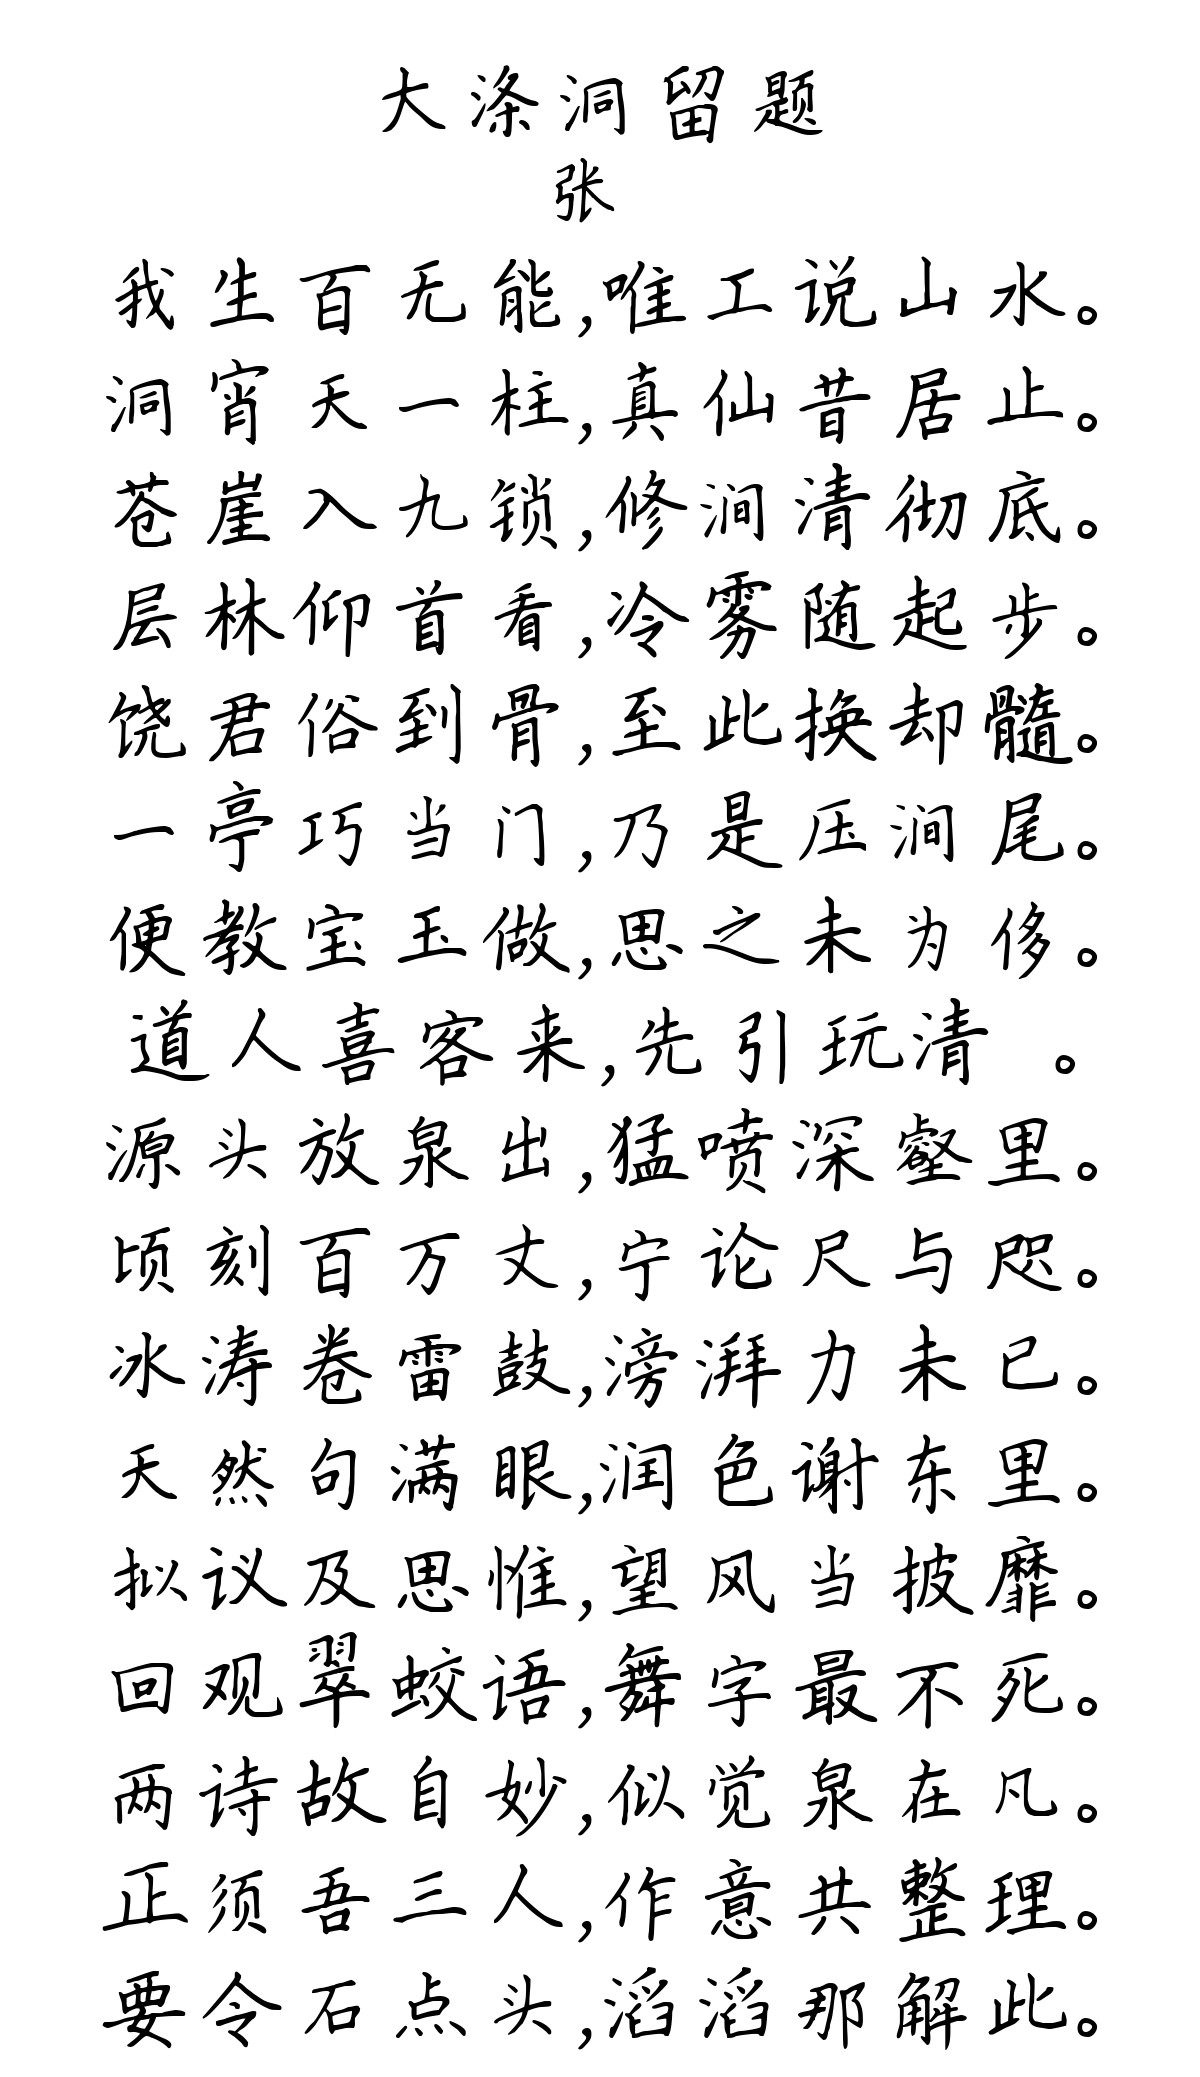 大涤洞留题
张
我生百无能,唯工说山水。
洞宵天一柱,真仙昔居止。
苍崖入九锁,修涧清彻底。
层林仰首看,冷雾随起步。
饶君俗到骨,至此换却髓。
一亭巧当门,乃是压涧尾。
便教宝玉做,思之未为侈。
道人喜客来,先引玩清 。
源头放泉出,猛喷深壑里。
顷刻百万丈,宁论尺与咫。
冰涛卷雷鼓,滂湃力未已。
天然句满眼,润色谢东里。
拟议及思惟,望风当披靡。
回观翠蛟语,舞字最不死。
两诗故自妙,似觉泉在凡。
正须吾三人,作意共整理。
要令石点头,滔滔那解此。